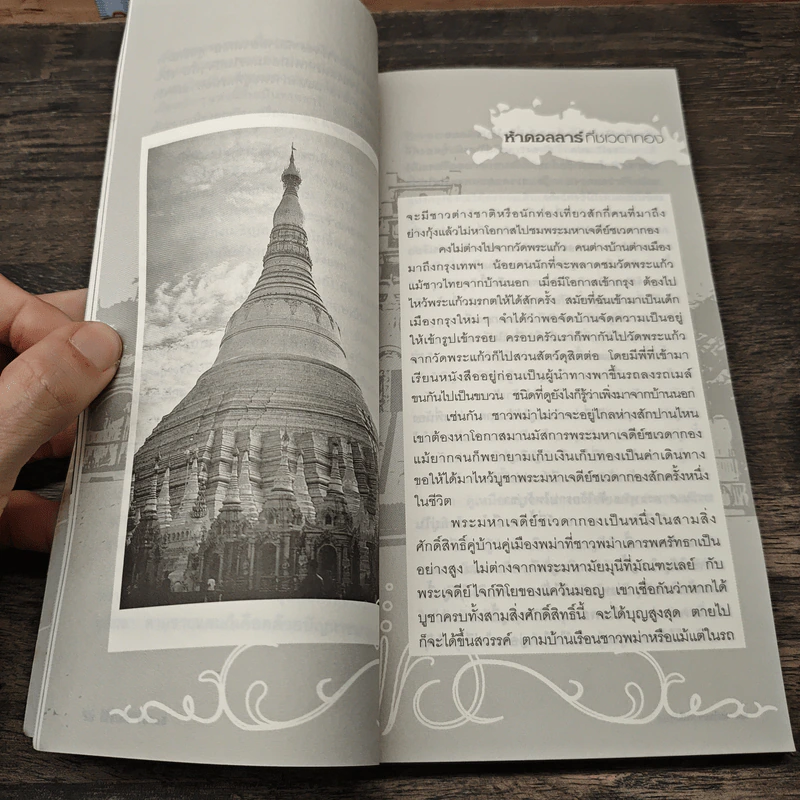 ห้าดอลลาร์ที่ชเวดากอง
จะมีชาวต่างชาติหรือนักท่องเที่ยวสักกี่คนที่มาถึง
ย่างกุ้งแล้วไม่หาโอกาสไปชมพระมหาเจดีย์ชเวดากอง
คงไม่ต่างไปจากวัดพระแก้ว คนต่างบ้านต่างเมือง
มาถึงกรุงเทพฯ น้อยคนนักที่จะพลาดชมวัดพระแก้ว
แม้ชาวไทยจากบ้านนอก เมื่อมีโอกาสเข้ากรุง ต้องไป
ไหว้พระแก้วมรกตให้ได้สักครั้ง สมัยที่ฉันเข้ามาเป็นเด็ก
เมืองกรุงใหม่ ๆ จำได้ว่าพอจัดบ้านจัดความเป็นอยู่
ให้เข้ารูปเข้ารอย ครอบครัวเราก็พากันไปวัดพระแก้ว
จากวัดพระแก้วก็ไปสวนสัตว์ดุสิตต่อ โดยมีพี่ที่เข้ามา
เรียนหนังสืออยู่ก่อนเป็นผู้นำทางพาขึ้นรถลงรถเมล์
ขนกันไปเป็นขบวน ชนิดที่ดูยังไงก็รู้ว่าเพิ่งมาจากบ้านนอก
เช่นกัน ชาวพม่าไม่ว่าจะอยู่ไกลห่างสักปานไหน
เขาต้องหาโอกาสมานมัสการพระมหาเจดีย์ชเวดากอง
แม้ยากจนก็พยายามเก็บเงินเก็บทองเป็นค่าเดินทาง
ขอให้ได้มาไหว้บูชาพระมหาเจดีย์ชเวดากองสักครั้งหนึ่ง
ในชีวิต
พระมหาเจดีย์ชเวดากองเป็นหนึ่งในสามสิ่ง
ศักดิ์สิทธิ์คู่บ้านคู่เมืองพม่าที่ชาวพม่าเคารพศรัทธาเป็น
อย่างสูง ไม่ต่างจากพระมหามัยมุนีที่มัณฑะเลย์ กับ
พระเจดีย์ไจก์ทิโยของแคว้นมอญ เขาเชื่อกันว่าหากได้
บูชาครบทั้งสามสิ่งศักดิ์สิทธิ์นี้ จะได้บุญสูงสุด ตายไป
ก็จะได้ขึ้นสวรรค์ ตามบ้านเรือนชาวพม่าหรือแม้แต่ในรถ